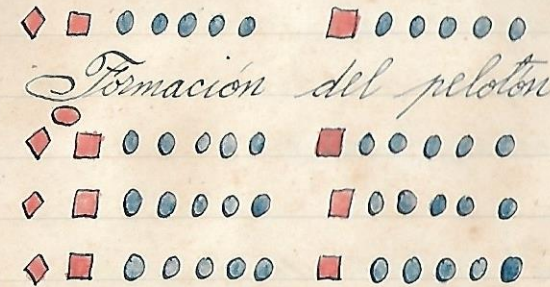 Formación del pelotón